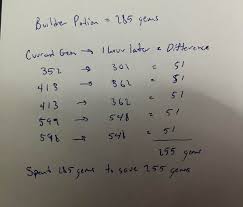 Builder Potion = 285 gems
Current Gem → 1 hour later = Difference
352 → 301 = 51
413 → 362 = 51
413 → 362 = 51
599 → 548 = 51
598 → 548 = 51
255 gems
Spent 285 gems to save 255 gems